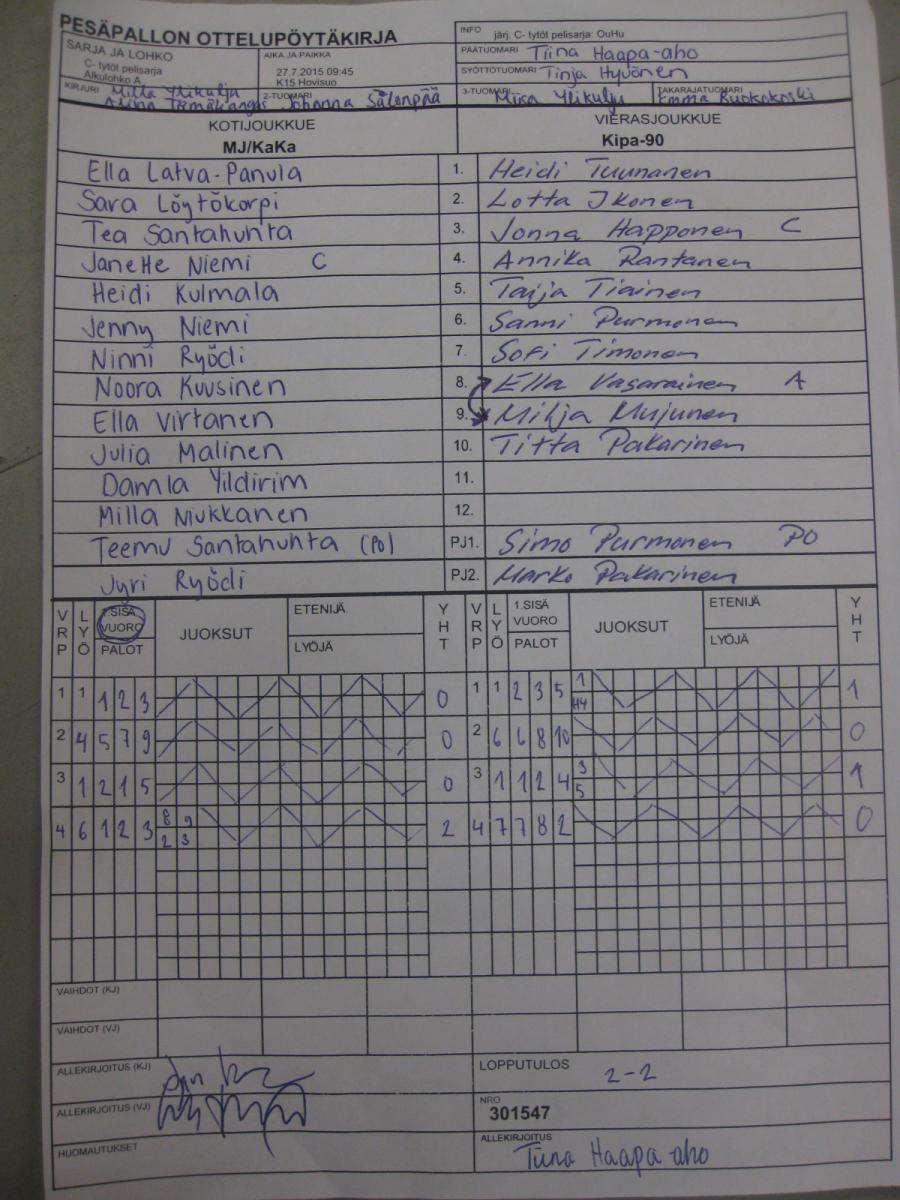 PESÄPALLON OTTELUPÖYTÄKIRJA
INFO järj. C- tytöt pelisarja: OuHu
SARJA JA LOHKO
C- tytöt pelisarja
Alkulohko A
AIKA JA PAIKKA
27.7.2015 09:45
K15 Hovisuo
PÄÄTUOMARI Tiina Haapa-aho
SYÖTTÖTUOMARI Tinja Hyvönen
KIRJURI Milla Ylikulju
2-TUOMARI Johanna Salonpää
3-TUOMARI Miisa Ylikulju
TAKARAJATUOMARI Emma Ruokokoski
KOTIJOUKKUE
MJ/KaKa
VIERASJOUKKUE
Kipa-90
Ella Latva-Panula 1. Heidi Tuunanen
Sara Löytökorpi 2. Lotta Ikonen
Tea Santahuhta 3. Jonna Happonen C
Janette Niemi C 4. Annika Rantanen
Heidi Kulmala 5. Taija Tiainen
Jenny Niemi 6. Sanni Purmonen
Ninni Ryödi 7. Sofi Timonen
Noora Kuusinen 8. Ella Vasarainen A
Ella Virtanen 9. Milja Mujunen
Julia Malinen 10. Titta Pakarinen
Damla Yildirim 11.
Milla Niukkanen 12.
Teemu Santahuhta (PO) PJ1. Simo Purmonen PO
Jyri Ryödi PJ2. Marko Pakarinen
VRP LYÖ 1.SISÄ VUORO PALOT JUOKSUT ETENIJÄ LYÖJÄ YHT VRP LYÖ 1.SISÄ VUORO PALOT JUOKSUT ETENIJÄ LYÖJÄ YHT
1 1 1 2 3 0 1 1 2 3 5 1 H4 1
2 4 5 7 9 0 2 6 6 8 10 0
3 1 2 1 5 0 3 1 1 2 4 3 5 1
4 6 1 2 3 8 9 2 3 2 4 7 7 8 2 0
VAIHDOT (KJ)
VAIHDOT (VJ)
ALLEKIRJOITUS (KJ)
LOPPUTULOS 2-2
ALLEKIRJOITUS (VJ)
NRO
301547
HUOMAUTUKSET
ALLEKIRJOITUS
Tiina Haapa-aho